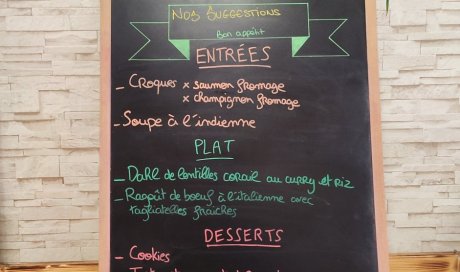 Nos Suggestions
Bon appétit
ENTRÉES
_ Croques x saumon fromage
x champignon fromage
_ Soupe à l'indienne
PLAT
_ Dahl de lentilles corail au curry et riz
_ Ragoût de boeuf à l'italienne avec
tagliatelles fraîches
DESSERTS
_ Cookies